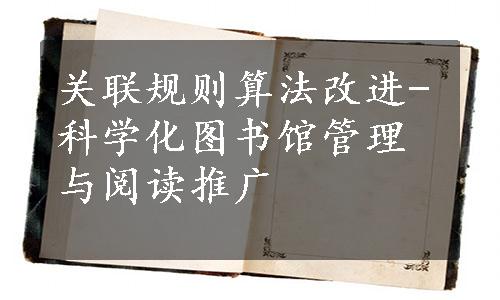 关联规则算法改进-
科学化图书馆管理
与阅读推广